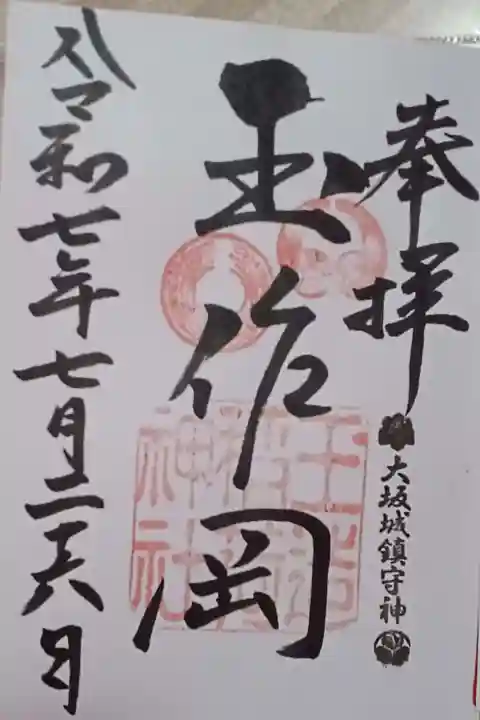 奉拝
大坂城鎮守神
玉作岡
玉造
神社
令和七年七月二十六日